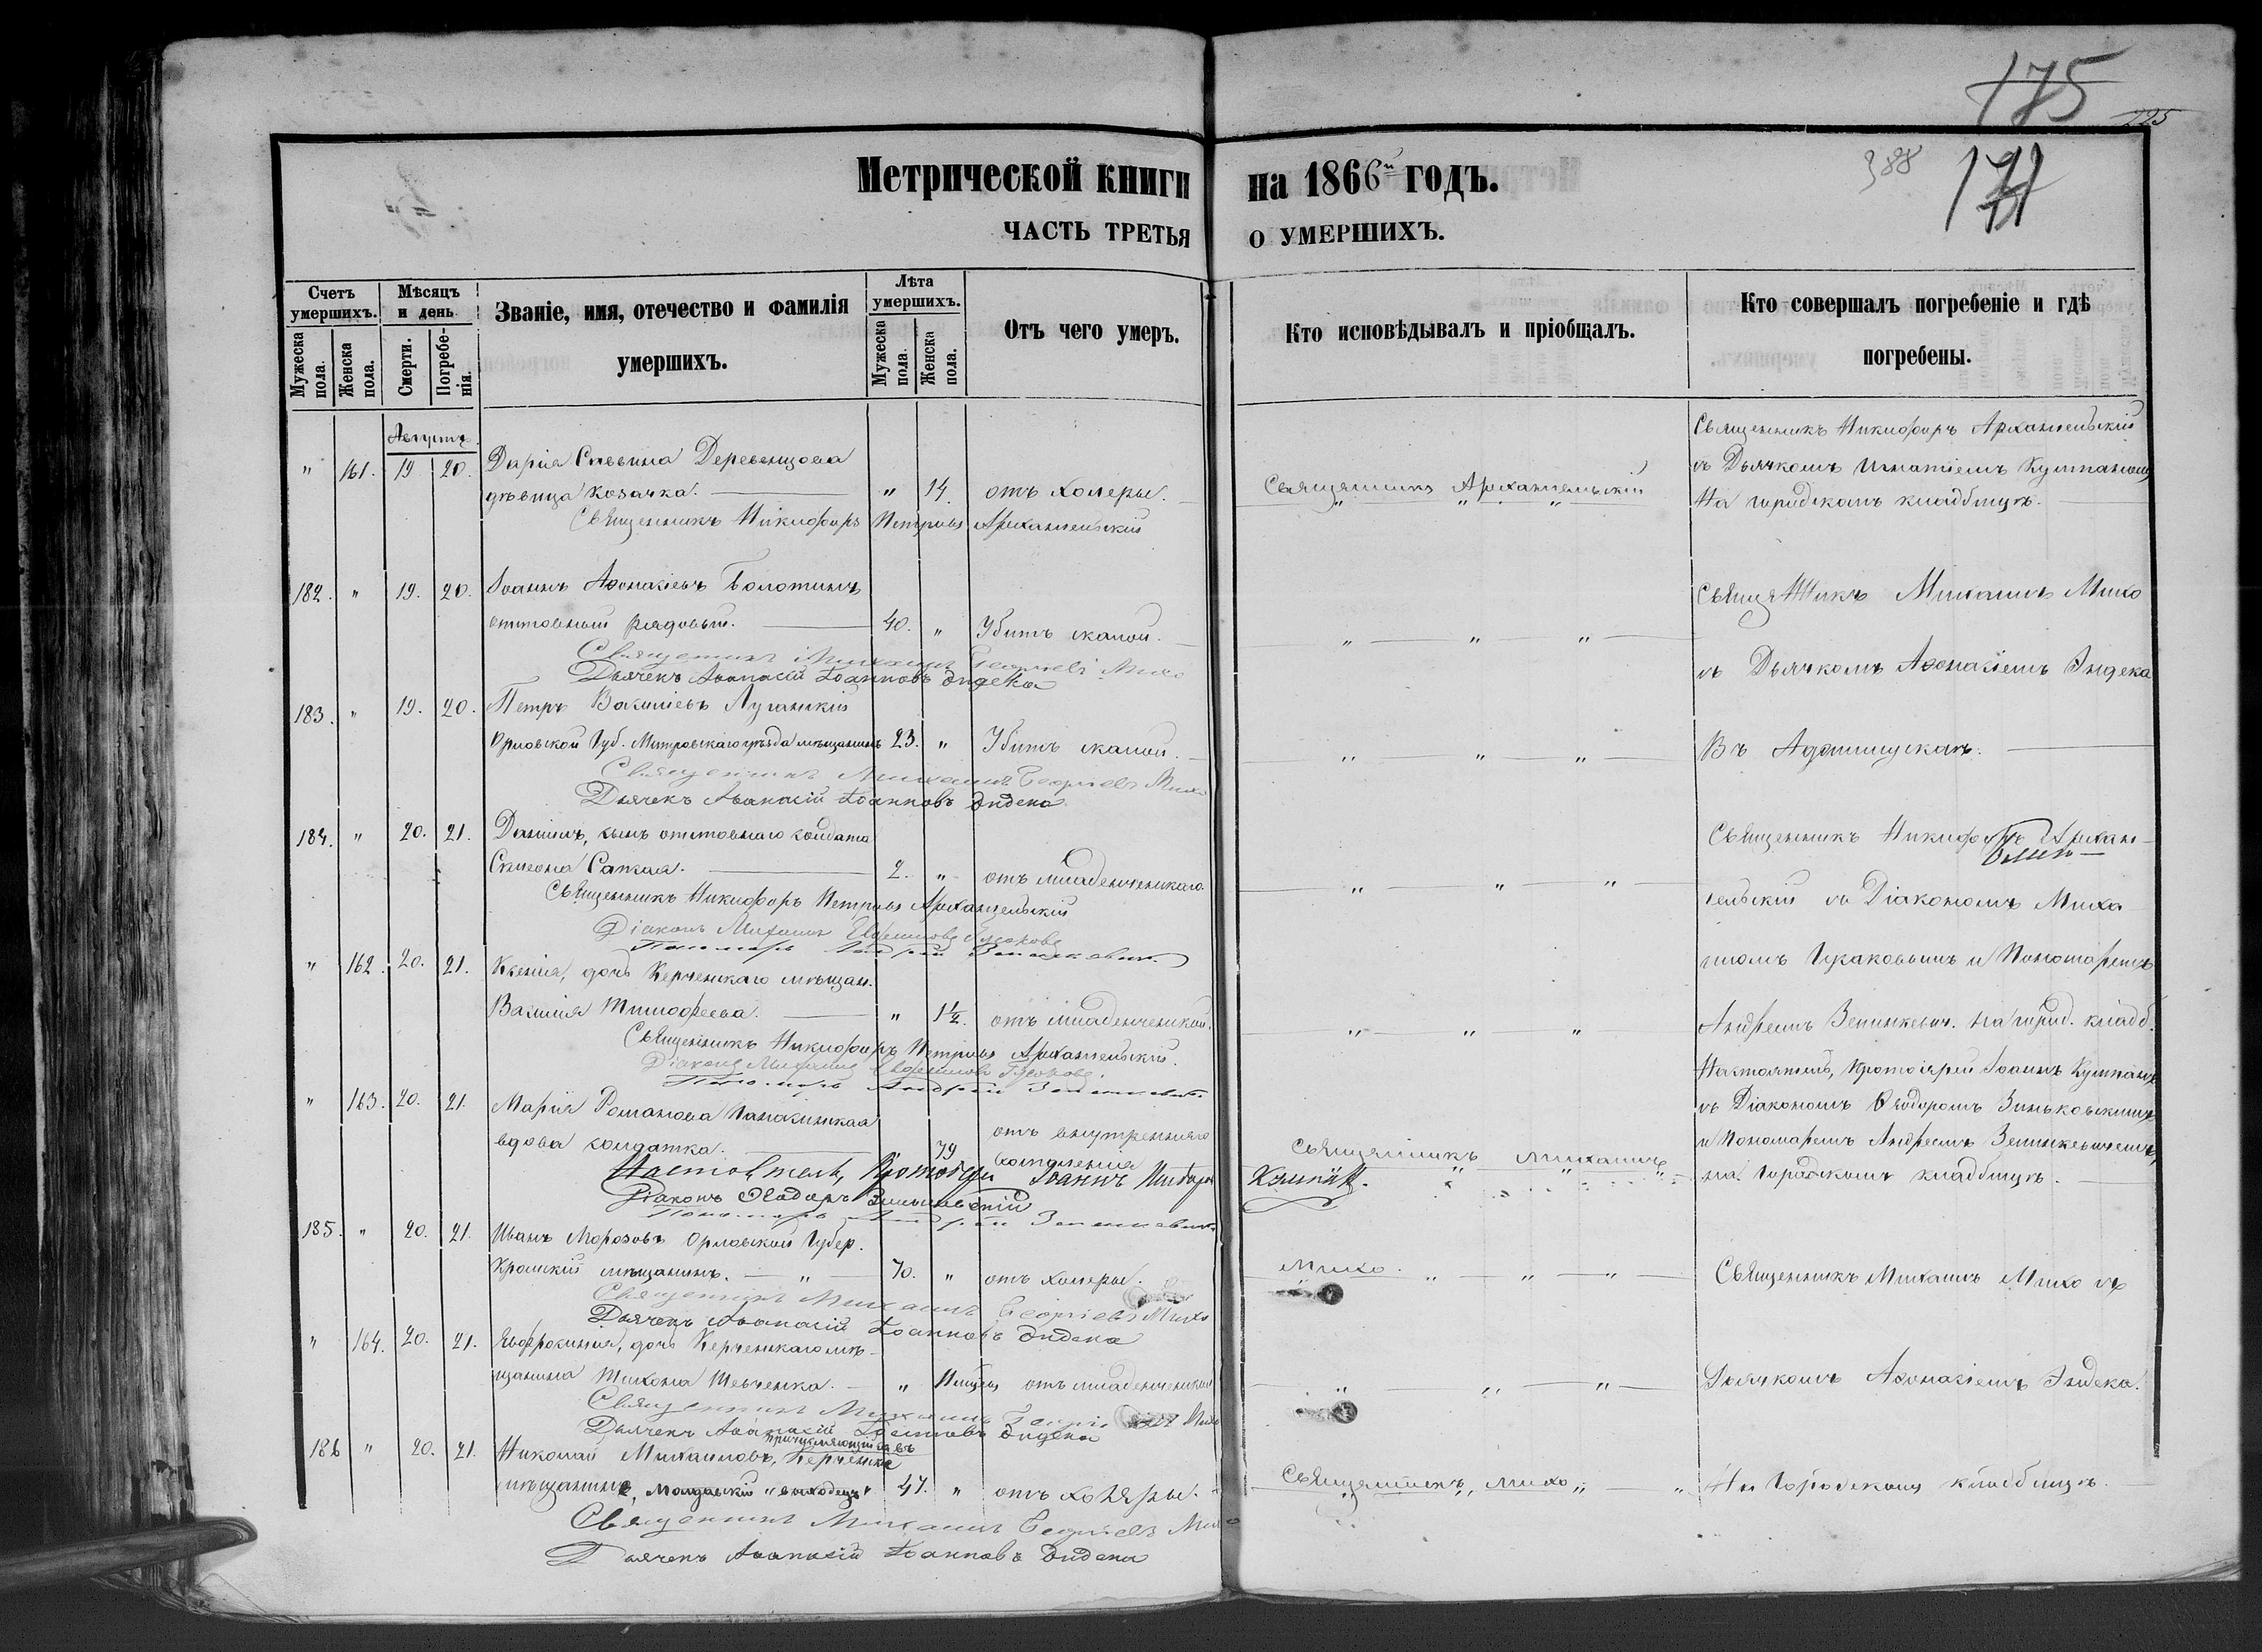 175
225
388
171
Метрической книги на 1866й годъ.
ЧАСТЬ ТРЕТЬЯ О УМЕРШИХЪ.
Счетъ умершихъ.
Мужеска пола.
Женска пола.
Мѣсяцъ и день
Смерти.
Погребенія.
Званіе, имя, отечество и фамилія умершихъ.
Лѣта умершихъ.
Мужеска пола.
Женска пола.
Отъ чего умеръ.
Кто исповѣдывалъ и пріобщалъ.
Кто совершалъ погребеніе и гдѣ погребены.
Августъ
" 161. 19 20. Дарія Саввина Деревенцова
дѣвица козачка. " 14. отъ холеры.
Священникъ Архангельскій
Священникъ Никифоръ Архангельскій
съ Дьячкомъ Игнатіемъ
На городскомъ кладбищѣ.
Священникъ Никифоръ Петровъ Архангельскій
182. " 19. 20. Іоаннъ Афонасіевъ Болотинъ
отставный рядовый. 40. " Убитъ скалой.
Священникъ Михаилъ Михо
съ Дьячкомъ Афонасіемъ Индека
Священникъ Михаилъ Георгіевъ Михо
Дьячекъ Аѳанасій Іоанновъ Индека
183. " 19. 20. Петръ Василіевъ Луганскій
Орловской Губ. уѣзда мѣщанинъ 23. " Убитъ скалой.
Въ
Священникъ Михаилъ Георгіевъ Михо
Дьячекъ Аѳанасій Іоанновъ Индека
184. " 20. 21. Даніилъ, сынъ отставнаго солдата
Симеона 2. " отъ младенческаго
Священникъ Никифоръ Архан-
гельскій съ Діакономъ Миха
Священникъ Никифоръ Петровъ Архангельскій
Діаконъ Михаилъ
Пономарь Андрей
" 162. 20. 21. Ксенія, дочь Керченскаго мѣщан.
Василія Тимофеева. " 1½. отъ младенческой.
иломъ и Пономаремъ
Андреемъ на город. кладб.
Священникъ Никифоръ Петровъ Архангельскій.
Діаконъ Михаилъ
Пономарь Андрей
" 163. 20. 21. Марія Романова
вдова солдатка. 79 отъ внутренняго
воспаленія
Священникъ Михаилъ
Настоятель, Протоіерей Іоаннъ
съ Діакономъ Ѳеодоромъ
и Пономаремъ Андреемъ
на Городскомъ кладбищѣ.
Настоятель, Протоіерей Іоаннъ
Діаконъ Ѳеодоръ
Пономарь Андрей
185. " 20. 21. Иванъ Морозовъ Орловской Губер.
Кромскій мѣщанинъ. 70. " отъ холеры.
Михо.
Священникъ Михаилъ Михо съ
Священникъ Михаилъ Георгіевъ Михо
Дьячекъ Аѳанасій Іоанновъ Индека
" 164. 20. 21. Евфросинія, дочь Керченскаго мѣ-
щанина Тихона Шевченка. " отъ младенческой
Дьячкомъ Афонасіемъ Индека.
Священникъ Михаилъ Георгіевъ Михо
Дьячекъ Аѳанасій Іоанновъ Индека
186 " 20. 21. Николай Михаиловъ, причисляющійся въ Керченскіе
мѣщанине, Молдавскій выходецъ 47. " отъ холеры.
Священникъ, Михо
На Городскомъ кладбищѣ.
Священникъ Михаилъ Георгіевъ Михо
Дьячекъ Аѳанасій Іоанновъ Индека